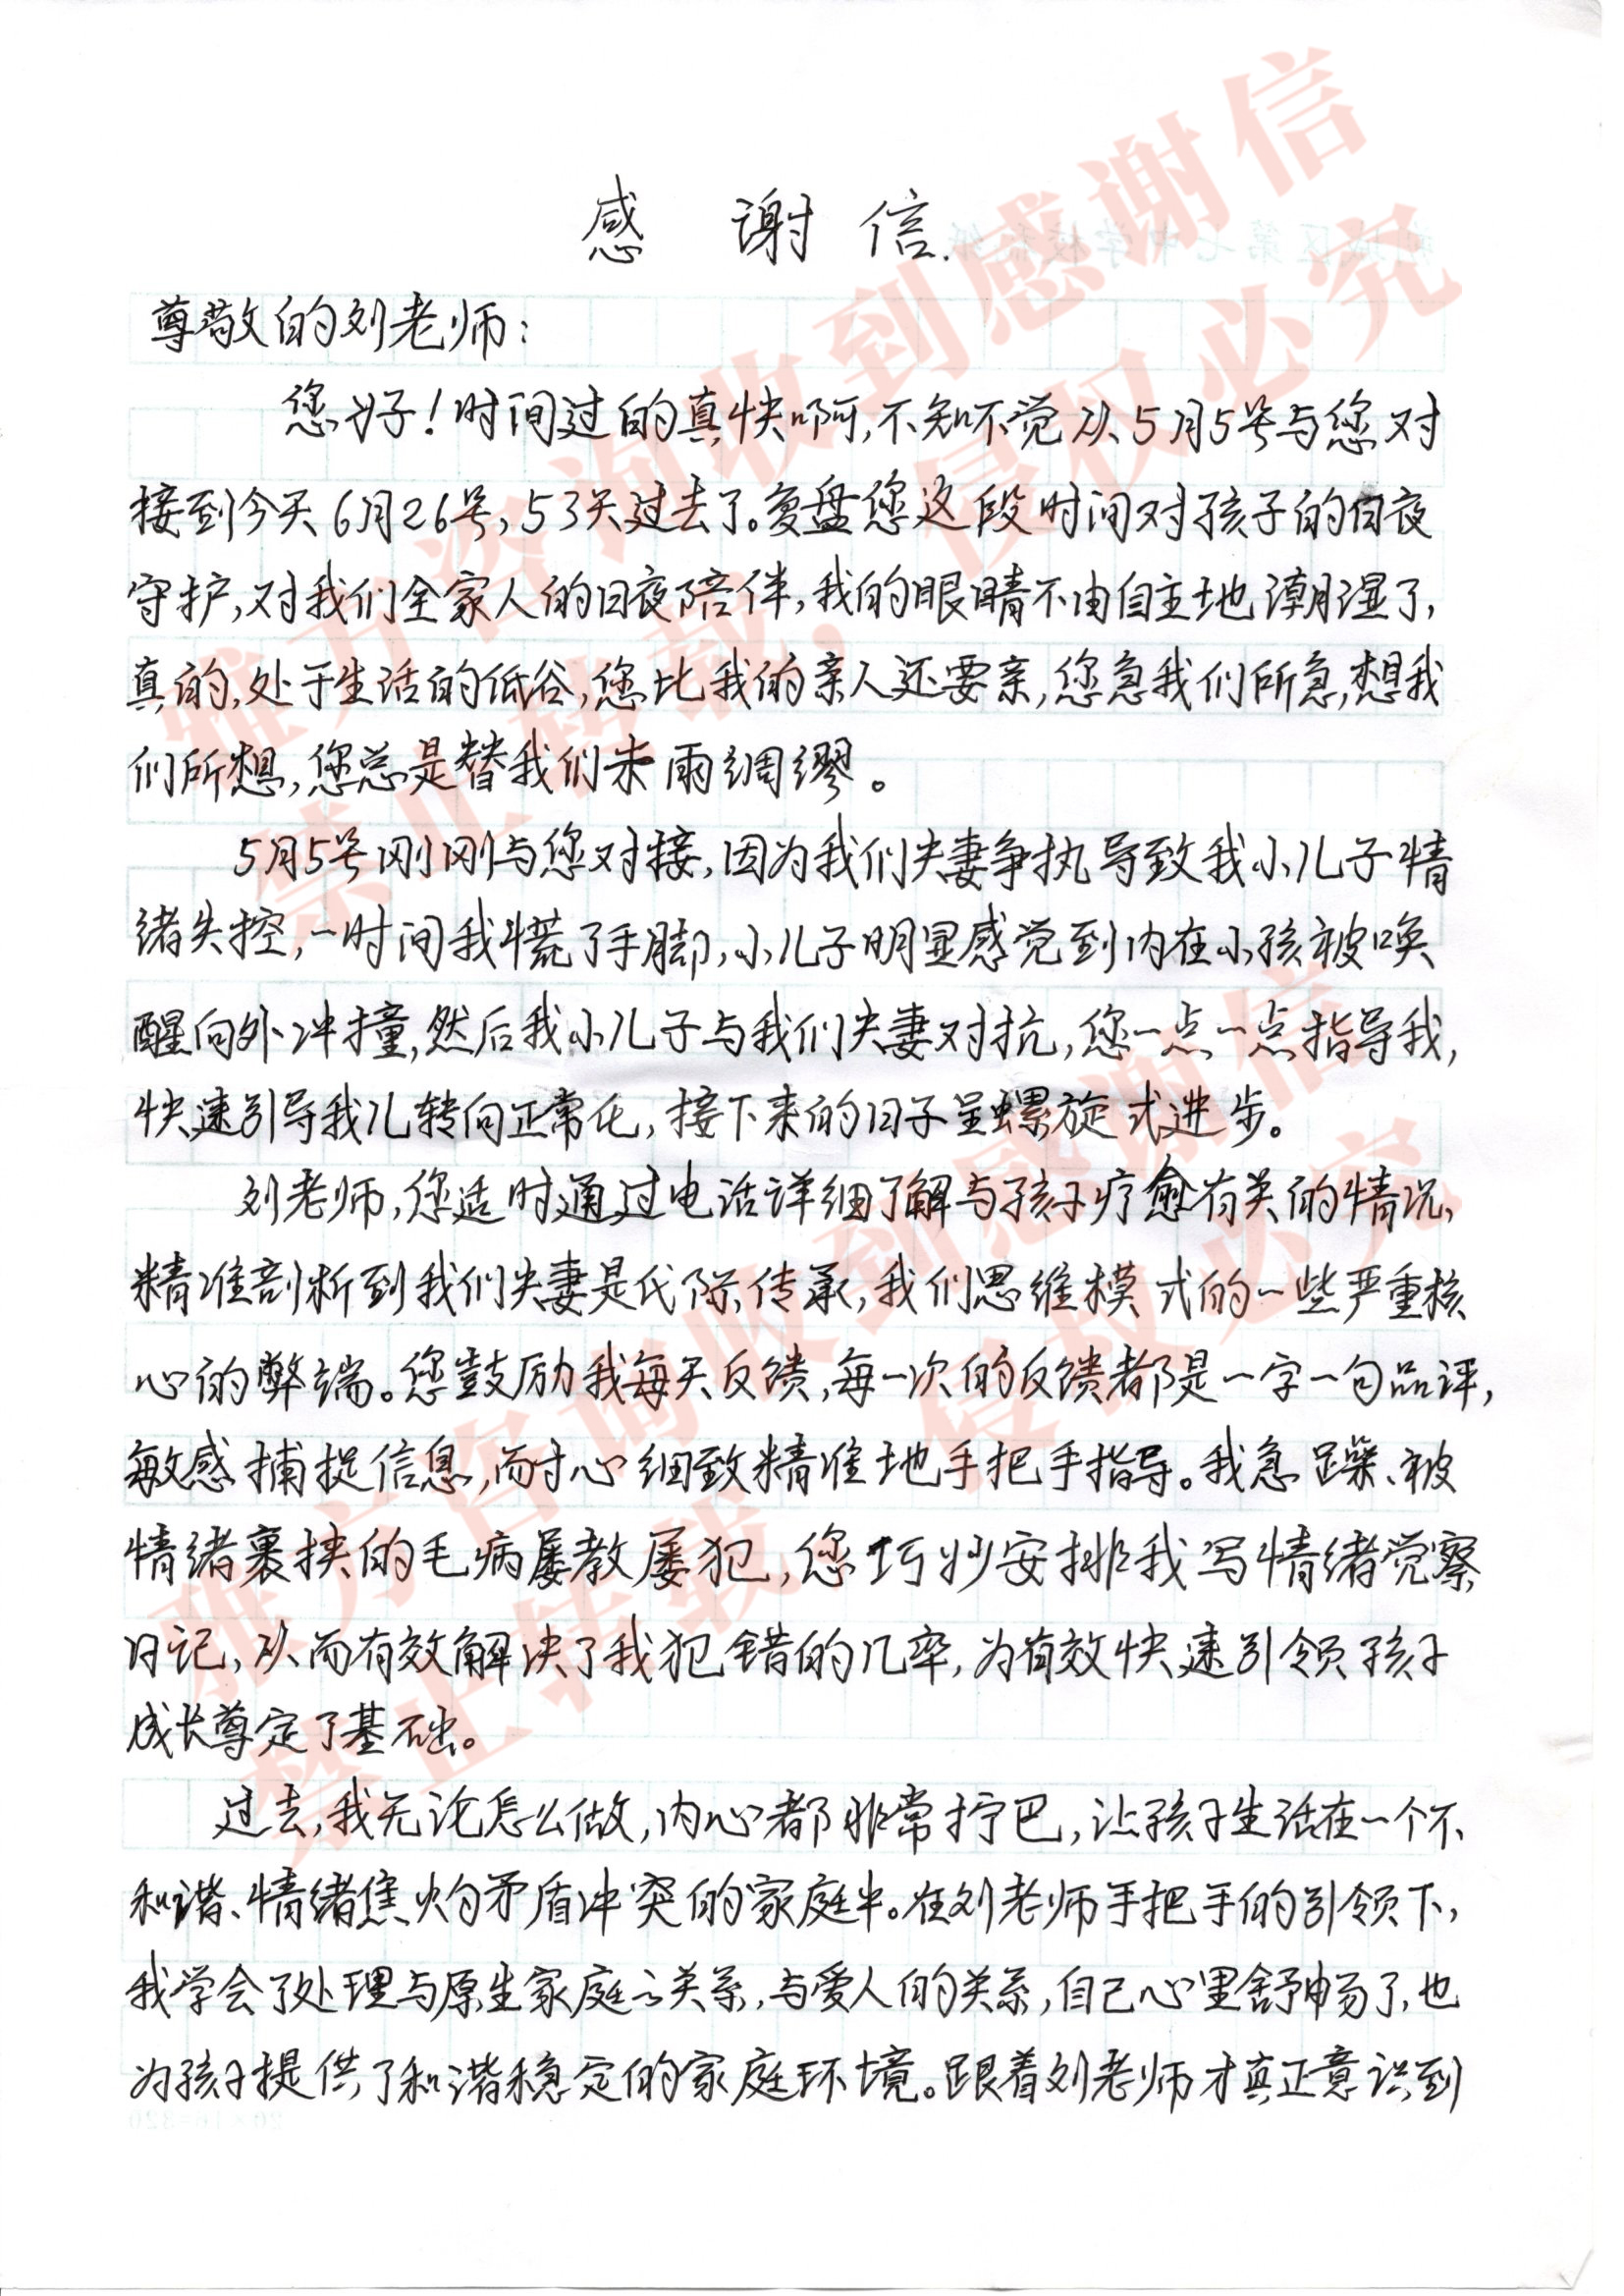 感谢信.
尊敬的刘老师：
您好！时间过的真快啊，不知不觉从5月5号与您对
接到今天6月26号，53天过去了。复盘您这段时间对孩子的日夜
守护，对我们全家人的日夜陪伴，我的眼睛不由自主地潮湿了，
真的，处于生活的低谷，您比我的亲人还要亲，您急我们所急，想我
们所想，您总是替我们未雨绸缪。
5月5号刚刚与您对接，因为我们夫妻争执导致我小儿子情
绪失控，一时间我慌了手脚，小儿子明显感觉到内在小孩被唤
醒向外冲撞，然后我小儿子与我们夫妻对抗，您一点一点指导我，
快速引导我儿转向正常化，接下来的日子呈螺旋式进步。
刘老师，您适时通过电话详细了解与孩子疗愈有关的情况，
精准剖析到我们夫妻是代际传承，我们思维模式的一些严重核
心的弊端。您鼓励我每天反馈，每一次的反馈都是一字一句品评，
敏感捕捉信息，耐心细致精准地手把手指导。我急躁、被
情绪裹挟的毛病屡教屡犯，您巧妙安排我写情绪觉察
日记，从而有效解决了我犯错的几率，为有效快速引领孩子
成长尊定了基础。
过去，我无论怎么做，内心都非常拧巴，让孩子生活在一个不
和谐、情绪焦灼矛盾冲突的家庭中。在刘老师手把手的引领下，
我学会了处理与原生家庭之关系，与爱人的关系，自己心里舒畅了，也
为孩子提供了和谐稳定的家庭环境。跟着刘老师才真正意识到
雅方咨询收到感谢信
禁止转载，侵权必究
雅方咨询收到感谢信
禁止转载，侵权必究
20×16=320